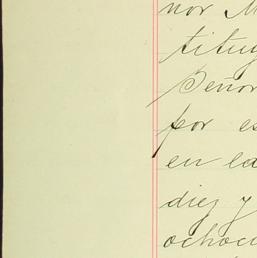 nor M
titu
Señor
por es
en la
diez y
ochoci